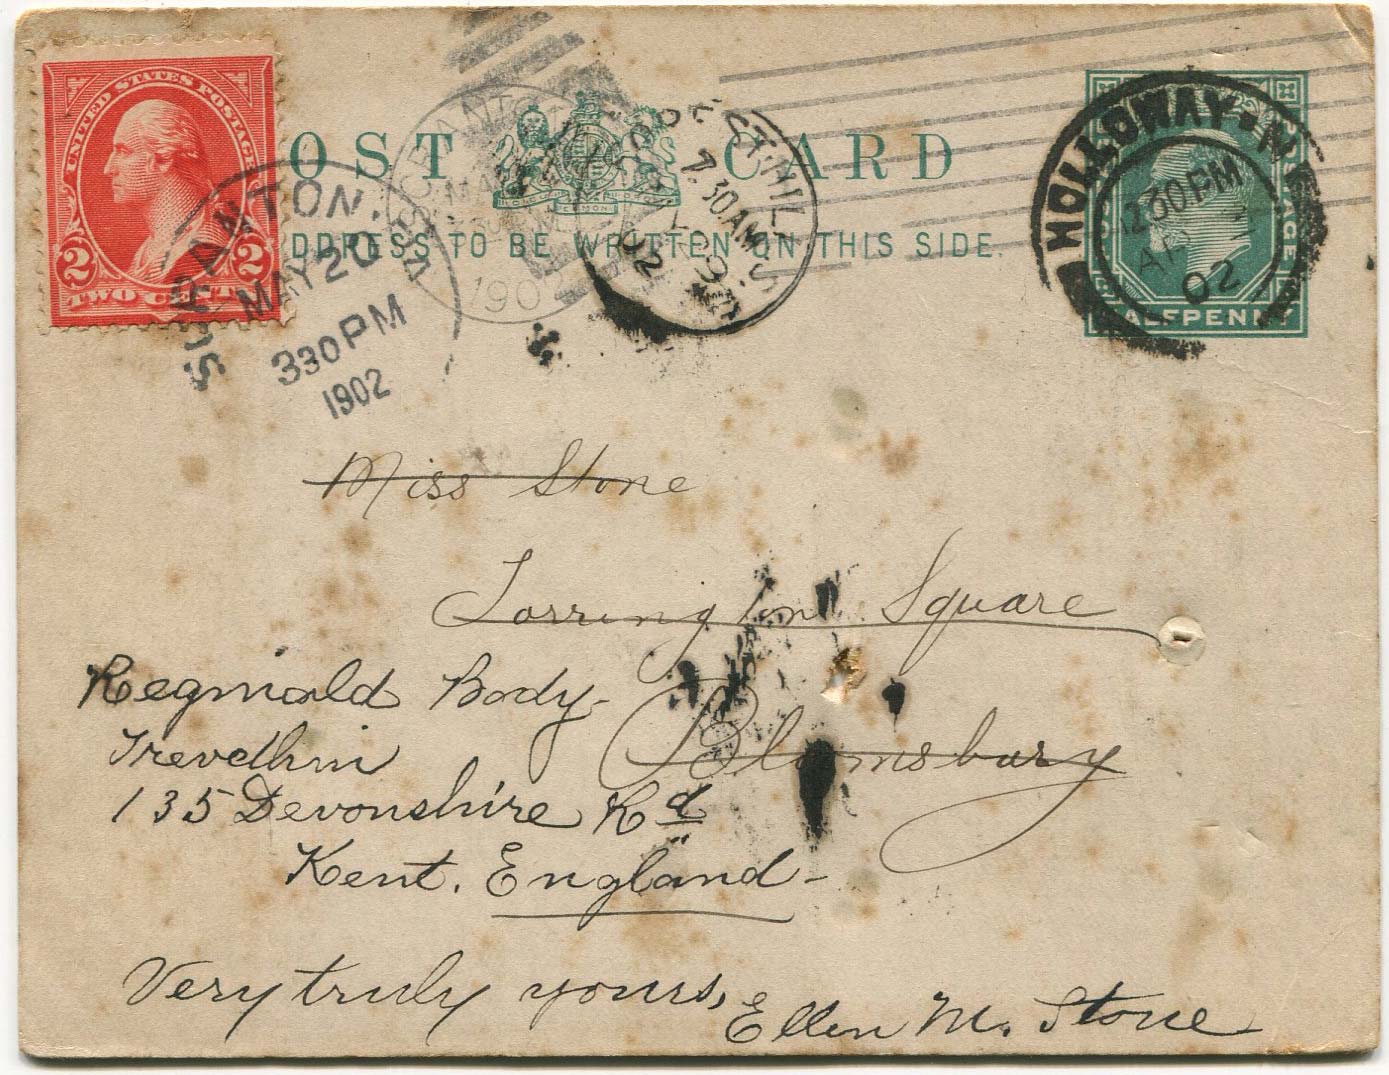 UNITED STATES POSTAGE
2 2
TWO CENTS
POST CARD
ADDRESS TO BE WRITTEN ON THIS SIDE.
SCRANTON.
MAY 20
330 PM
1902
190
FOREST HILL S.
7.30AM
02
HOLLOWAY·N
1230PM
AP
02
HALFPENNY
Miss Stone
Torrington Square
Bloomsbury
Reginald Body-
Trevethin
135 Devonshire Rd
Kent. England-
Very truly yours,
Ellen M. Stone